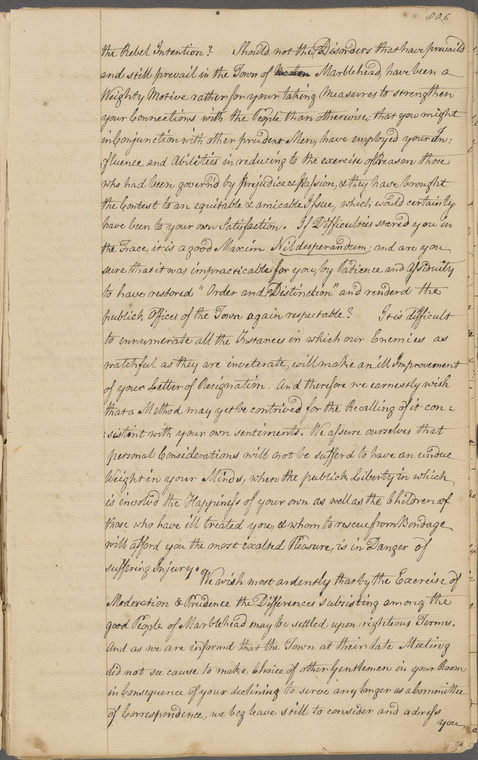 806
the Rebel Intention? Should not the Disorders that have prevaild
and still prevail in the Town of Marblehead, have been a
Weighty Motive rather for your taking Measures to strengthen
your Connections with the People than otherwise, that you might
in Conjunction with other prudent Men, have employed your In:
fluence and Abilities in reducing to the exercise of Reason those
who had been govern'd by prejudice & Passion, & they have brought
the Contest to an equitable & amicable Issue, which would certainly
have been to your own Satisfaction. If Difficulties stared you in
the Face, it is a good Maxim Nil desperandum, and are you
sure that it was impracticable for you, by Patience and Assiduity
to have restored "Order and Distinction" and renderd the
publick Offices of the Town again respectable? It is difficult
to ennumerate all the Instances in which our Enemies as
watchful as they are inveterate, will make an ill Improvement
of your Letter of Resignation. And therefore we earnestly wish
that a Method may yet be contrived for the Recalling of it con =
: sistent with your own sentiments. We assure ourselves that
personal Considerations will not be sufferd to have an undue
Weight in your Minds, when the publick Liberty in which
is involvd the Happiness of your own as well as the Children of
those who have ill treated you, & whom to rescue from Bondage
will afford you the most exalted Pleasure, is in Danger of
suffering Injury.
We wish most ardently that by the Exercise of
Moderation & Prudence the Differences subsisting among the
good People of Marblehead may be settled upon righteous Terms.
And as we are informd that the Town at their late Meeting
did not see cause to make Choice of other Gentlemen in your Room
in Consequence of your declining to serve any longer as a Committee
of Correspondence, we beg leave still to consider and adress
you